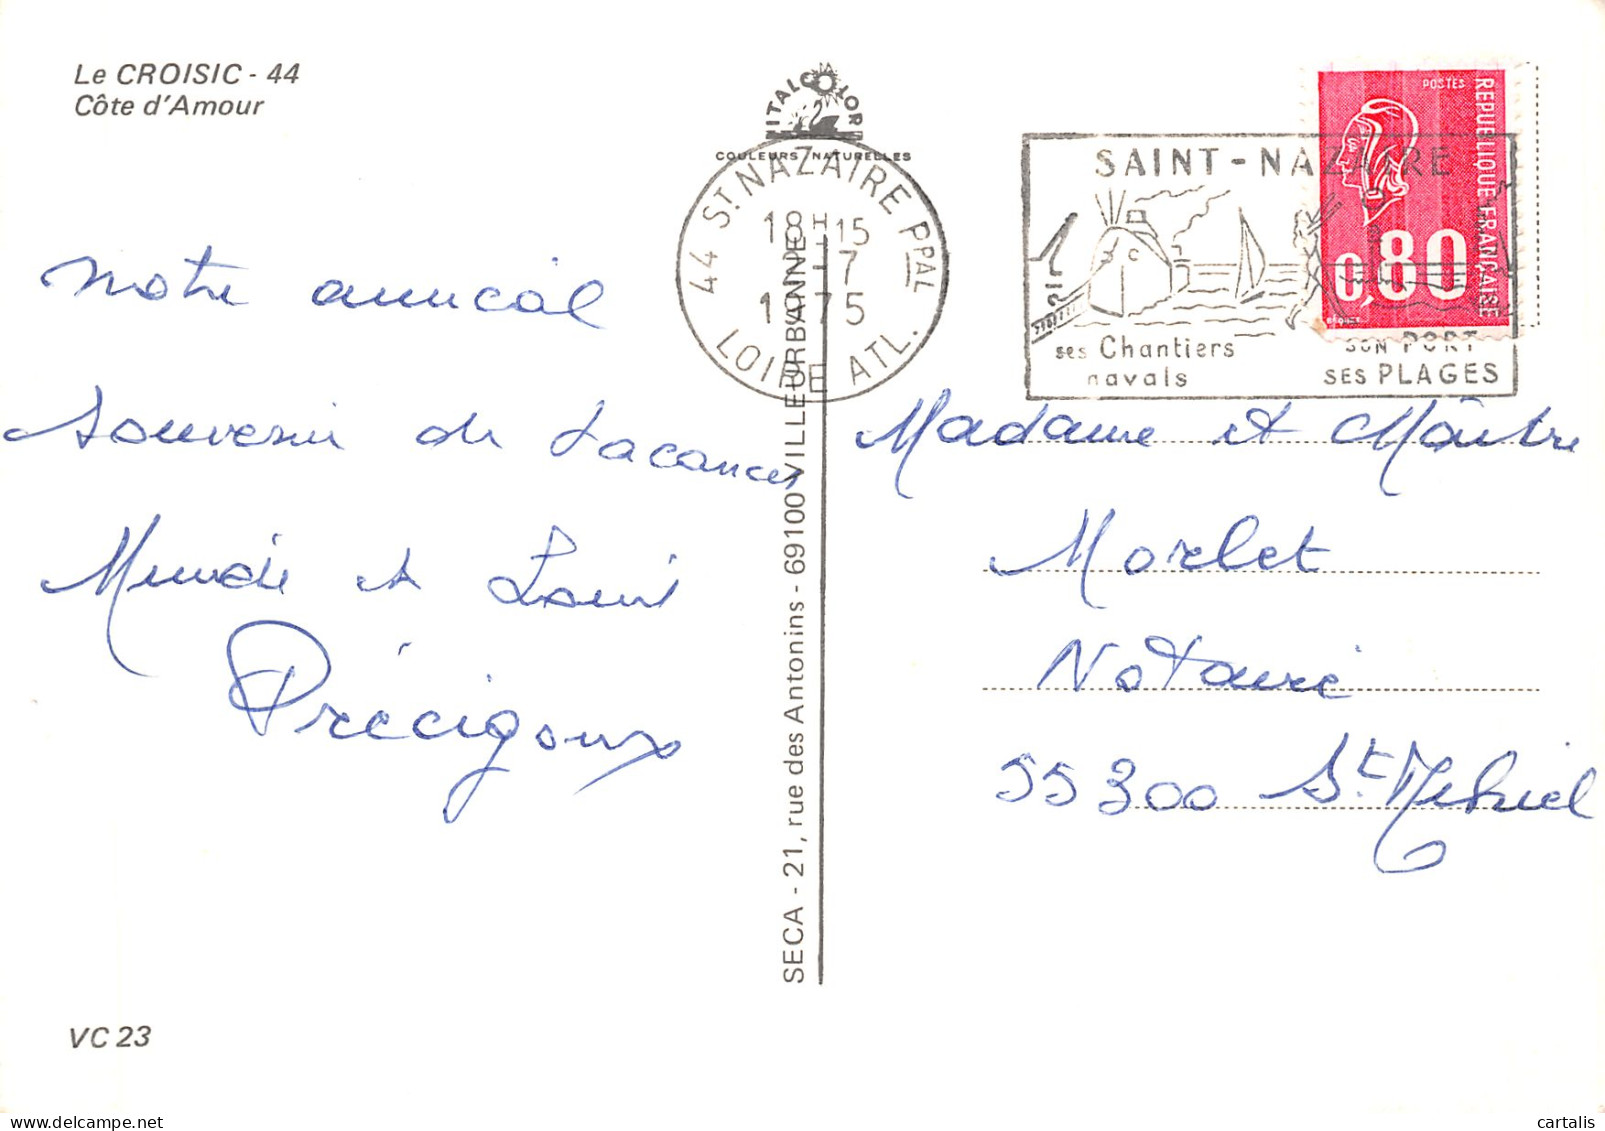 Le CROISIC - 44
Côte d'Amour
ITALCOLOR
COULEURS NATURELLES
44 ST NAZAIRE PPAL
18H15
1-7
1975
LOIRE ATL.
SAINT-NAZAIRE
ses Chantiers
navals
SON PORT
SES PLAGES
POSTES
REPUBLIQUE FRANÇAISE
0,80
notre amical
souvenir de vacances
et Louis
Précigoux
Madame et Maître
Morlet
Notaire
55300 St Mihiel
SECA - 21, rue des Antonins - 69100 VILLEURBANNE
VC 23
cartalis